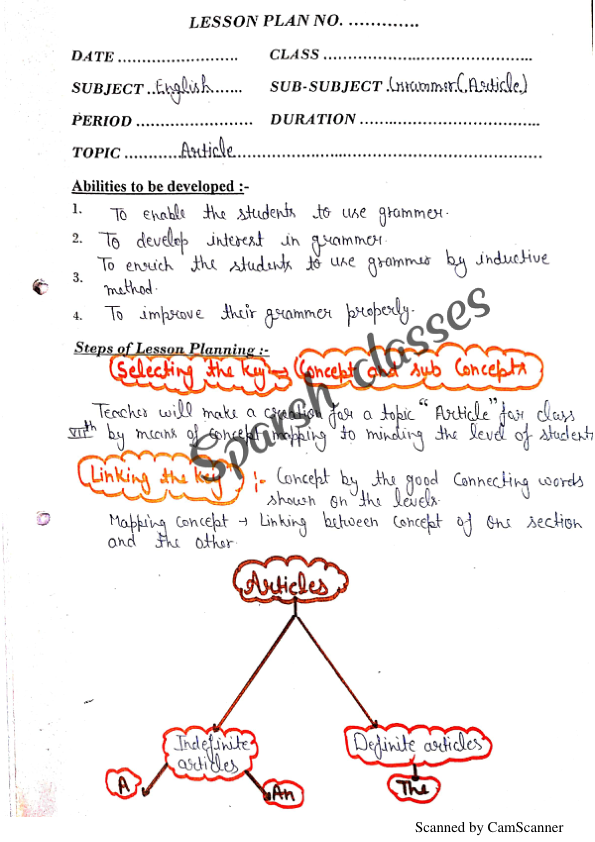 LESSON PLAN NO. .............
DATE ..................... CLASS .............................................
SUBJECT ..English...... SUB-SUBJECT Grammer(Article)
PERIOD ........................ DURATION .....................................
TOPIC ............Article..................................................................
Abilities to be developed :-
1. To enable the students to use grammer.
2. To develop interest in grammer.
3. To enrich the students to use grammer by inductive
method.
4. To improve their grammer properly.
Steps of Lesson Planning :-
Selecting the Key → Concept and sub Concepts
Teacher will make a creation for a topic "Article" for class
VIIth by means of concept mapping to minding the level of students
Linking the Key :- Concept by the good Connecting words
shown on the levels.
Mapping concept → Linking between concept of one section
and the other.
Articles
Indefinite
articles
Definite articles
A
An
The
Sparsh classes
Scanned by CamScanner